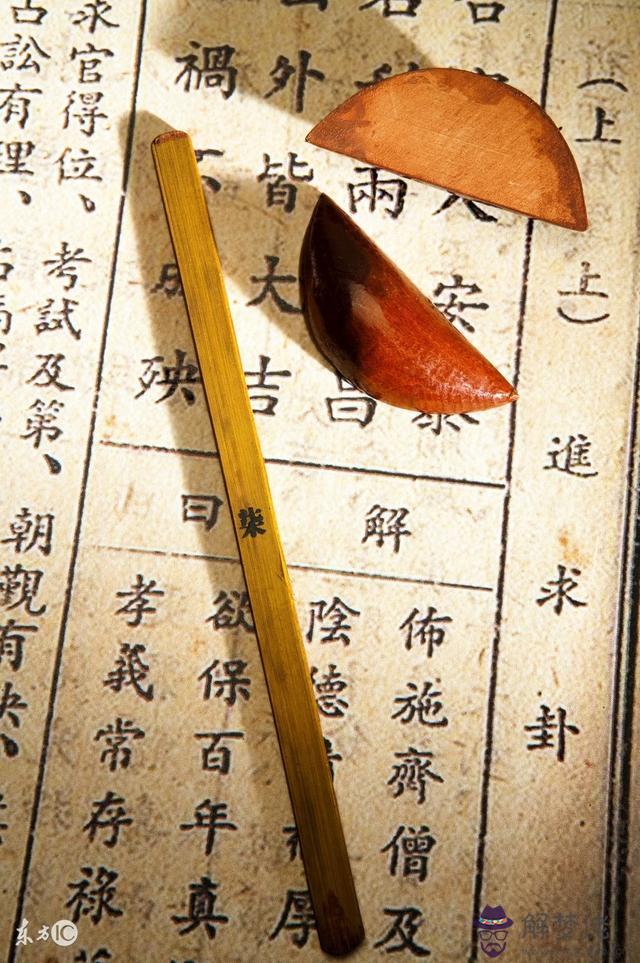 （上上）進求卦
安泰
兩昌
外皆大吉
禍不成殃
解曰
佈施齊僧及
陰德厚
欲保百年真
孝義常存祿
求官得位、考試及第、朝觀有
訟有理、
柒
东方IC
解梦佬